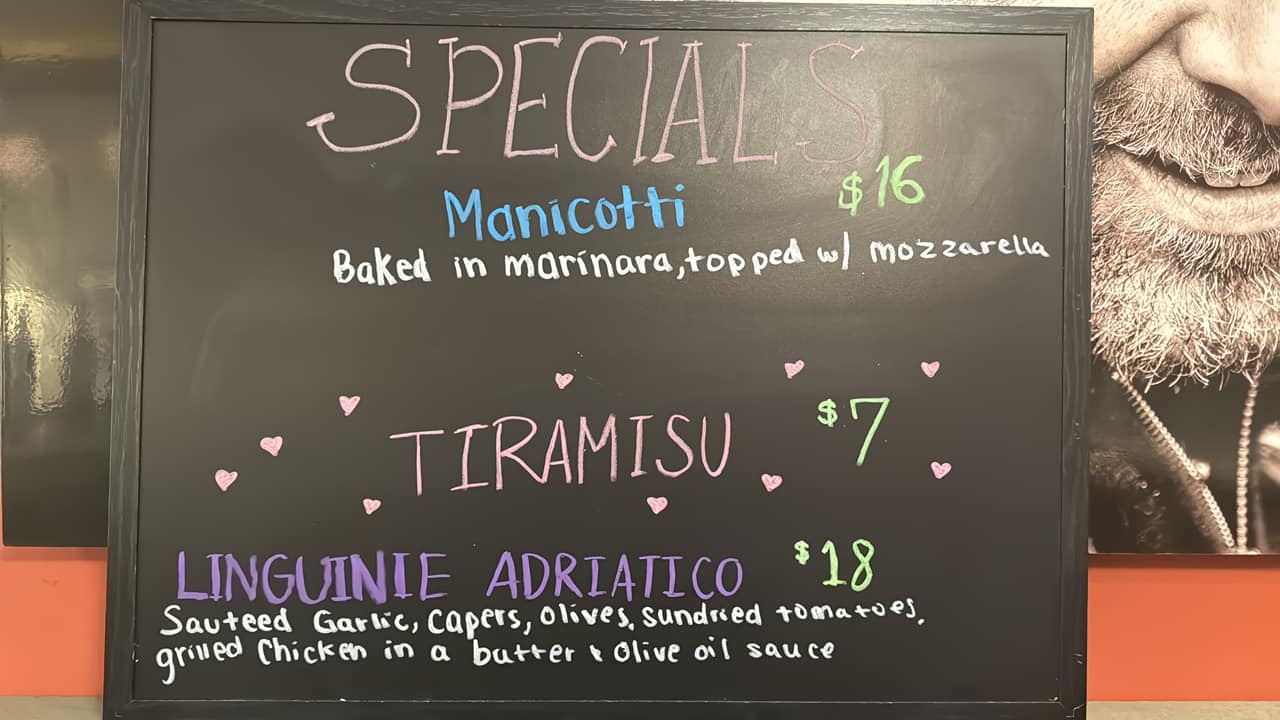 SPECIALS
Manicotti $16
Baked in marinara, topped w/ mozzarella
TIRAMISU $7
LINGUINIE ADRIATICO $18
Sauteed Garlic, Capers, Olives, sundried tomatoes,
grilled Chicken in a butter & Olive oil sauce